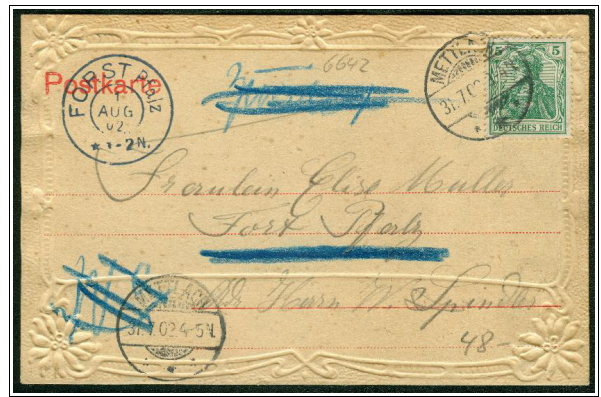 6642
Postkarte
FORST Pfalz
1
AUG
02
1-2N.
METTLACH
31.7.02
5 5
DEUTSCHES REICH
Fraulein Elise Muller
Fort Pfalz
Adr Herrn W. Spindler
METTLACH
31.7.02.4-5N.
48-